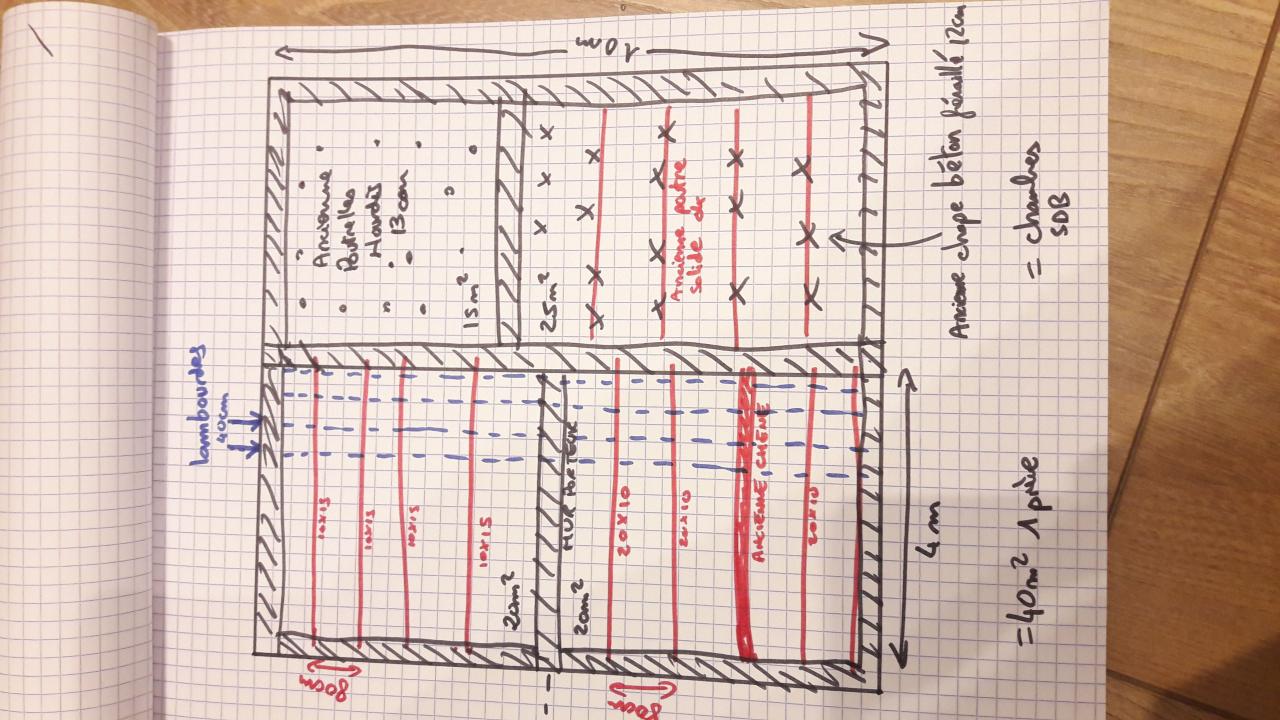 10m
Ancienne
Poutrelles
Hourdis
13 cm
15m²
25m²
Ancienne poutre
solide
Ancienne chape béton férraillé 12cm
= chambres
SDB
lambourdes
40cm
10x15
10x15
10x15
10x15
20m²
MUR PORTEUR
20m²
20x10
20x10
ANCIENNE CHENE
20x10
80cm
80cm
4m
= 40m² 1 pièce